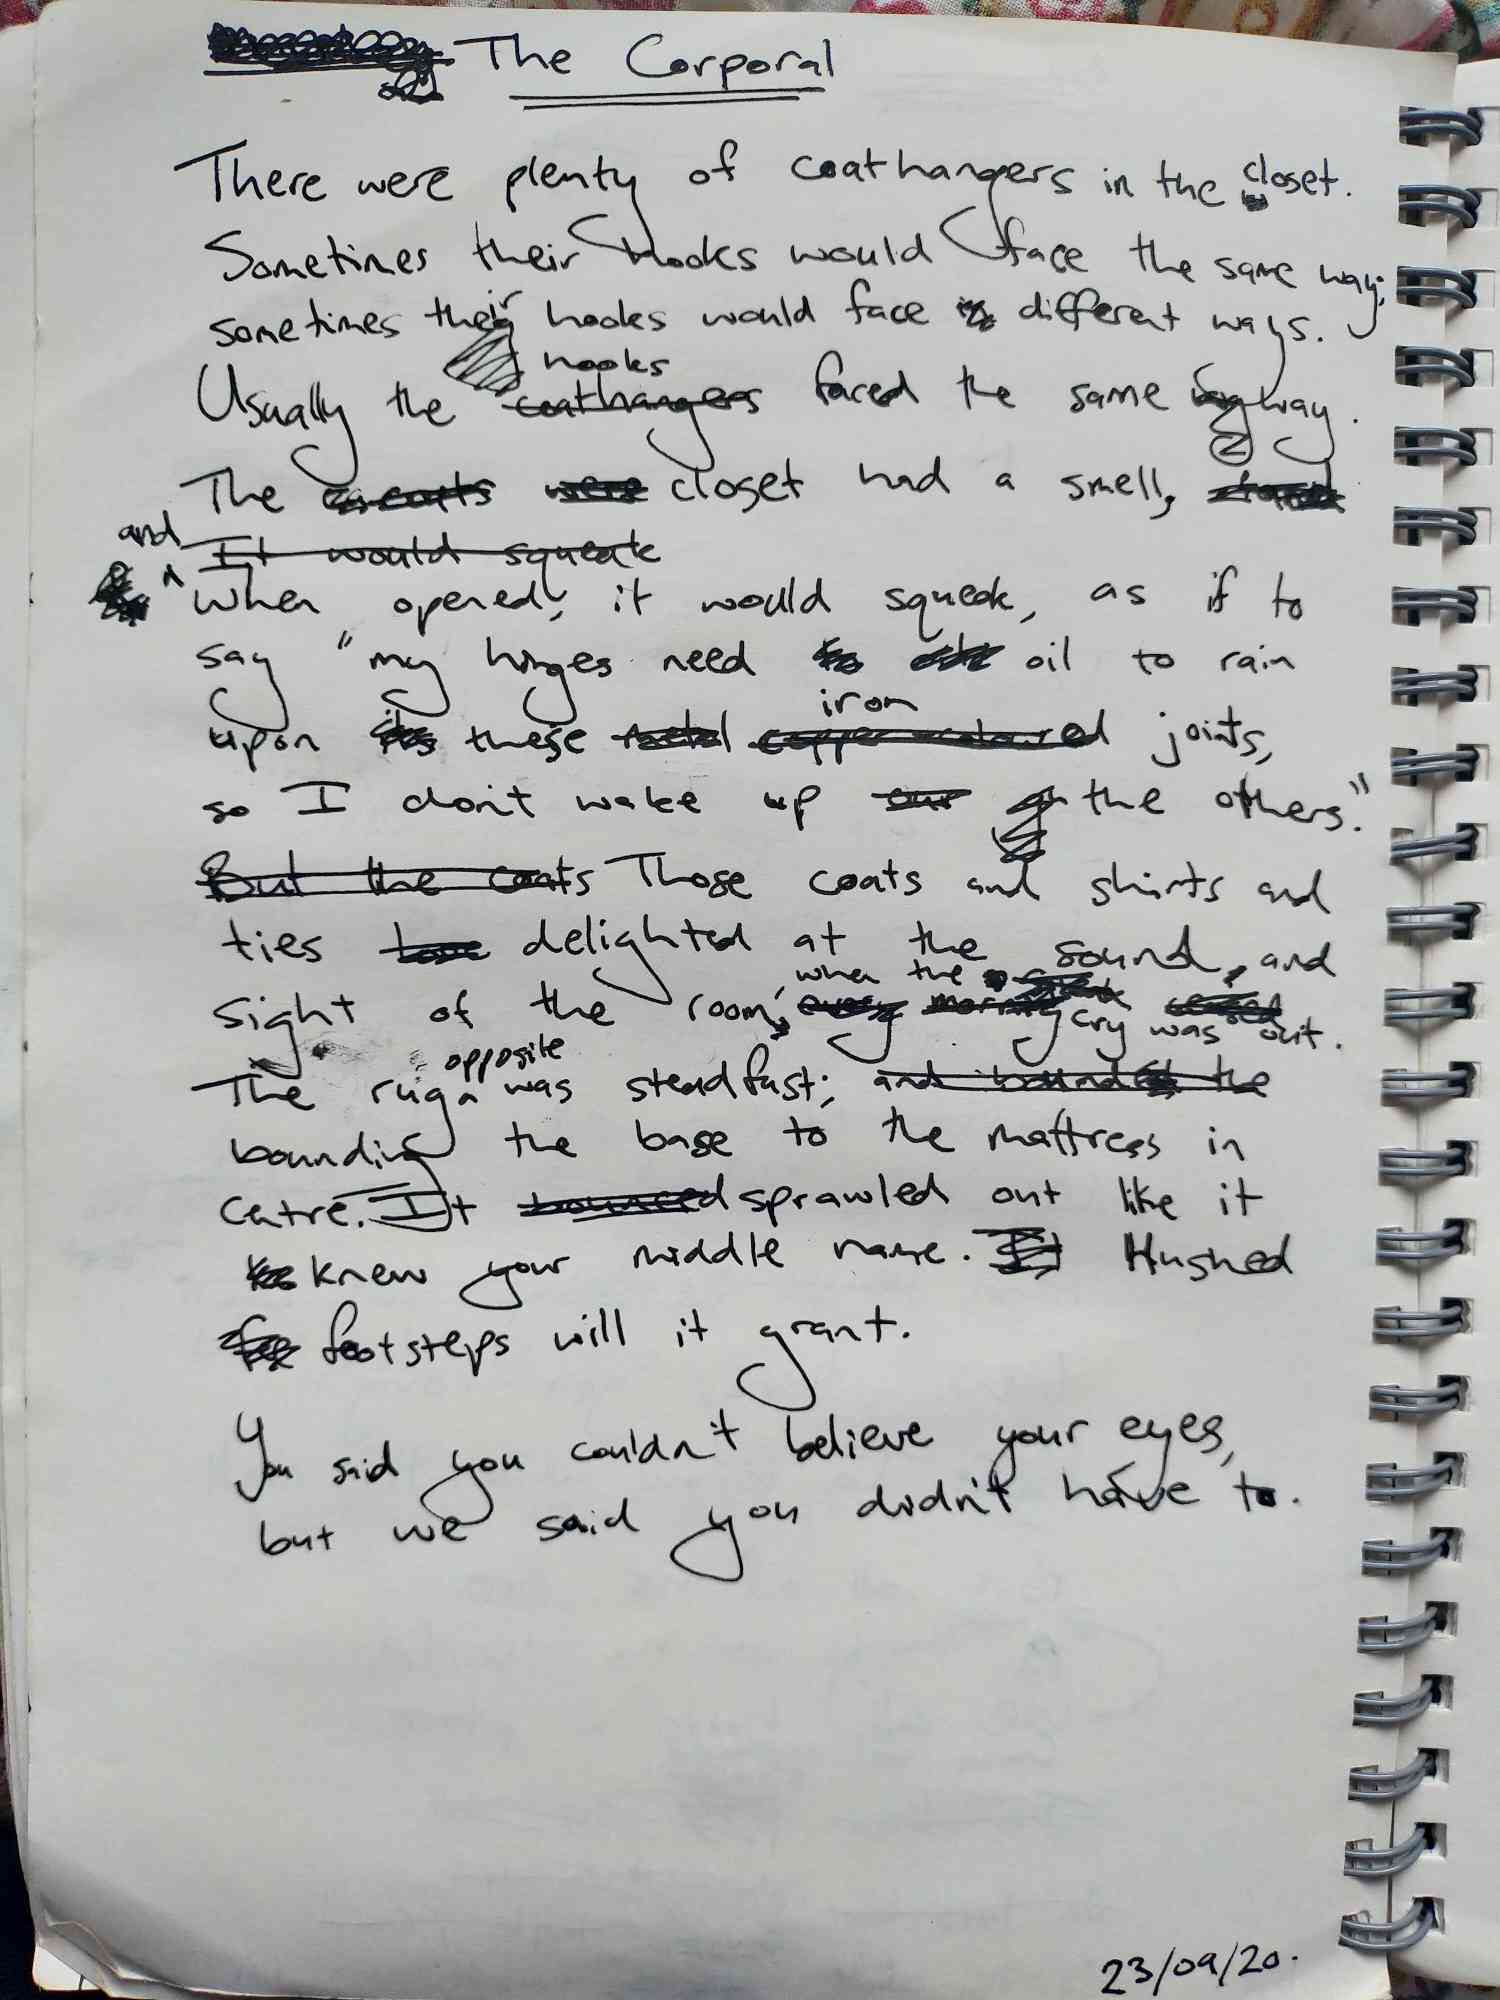 The Corporal
There were plenty of coathangers in the closet.
Sometimes their hooks would face the same way;
sometimes their hooks would face different ways.
Usually the hooks faced the same way.
The closet had a smell,
and
It would squeak
when opened, it would squeak, as if to
say "my hinges need oil to rain
upon these iron joints,
so I don't wake up the others."
But the coats Those coats and shirts and
ties delighted at the sound, and
sight of the room, when the cry was out.
The rug opposite was steadfast; and bounded the
bounding the base to the mattress in
centre. It bounced sprawled out like it
knew your middle name. Hushed
footsteps will it grant.
You said you couldn't believe your eyes,
but we said you didn't have to.
23/09/20.